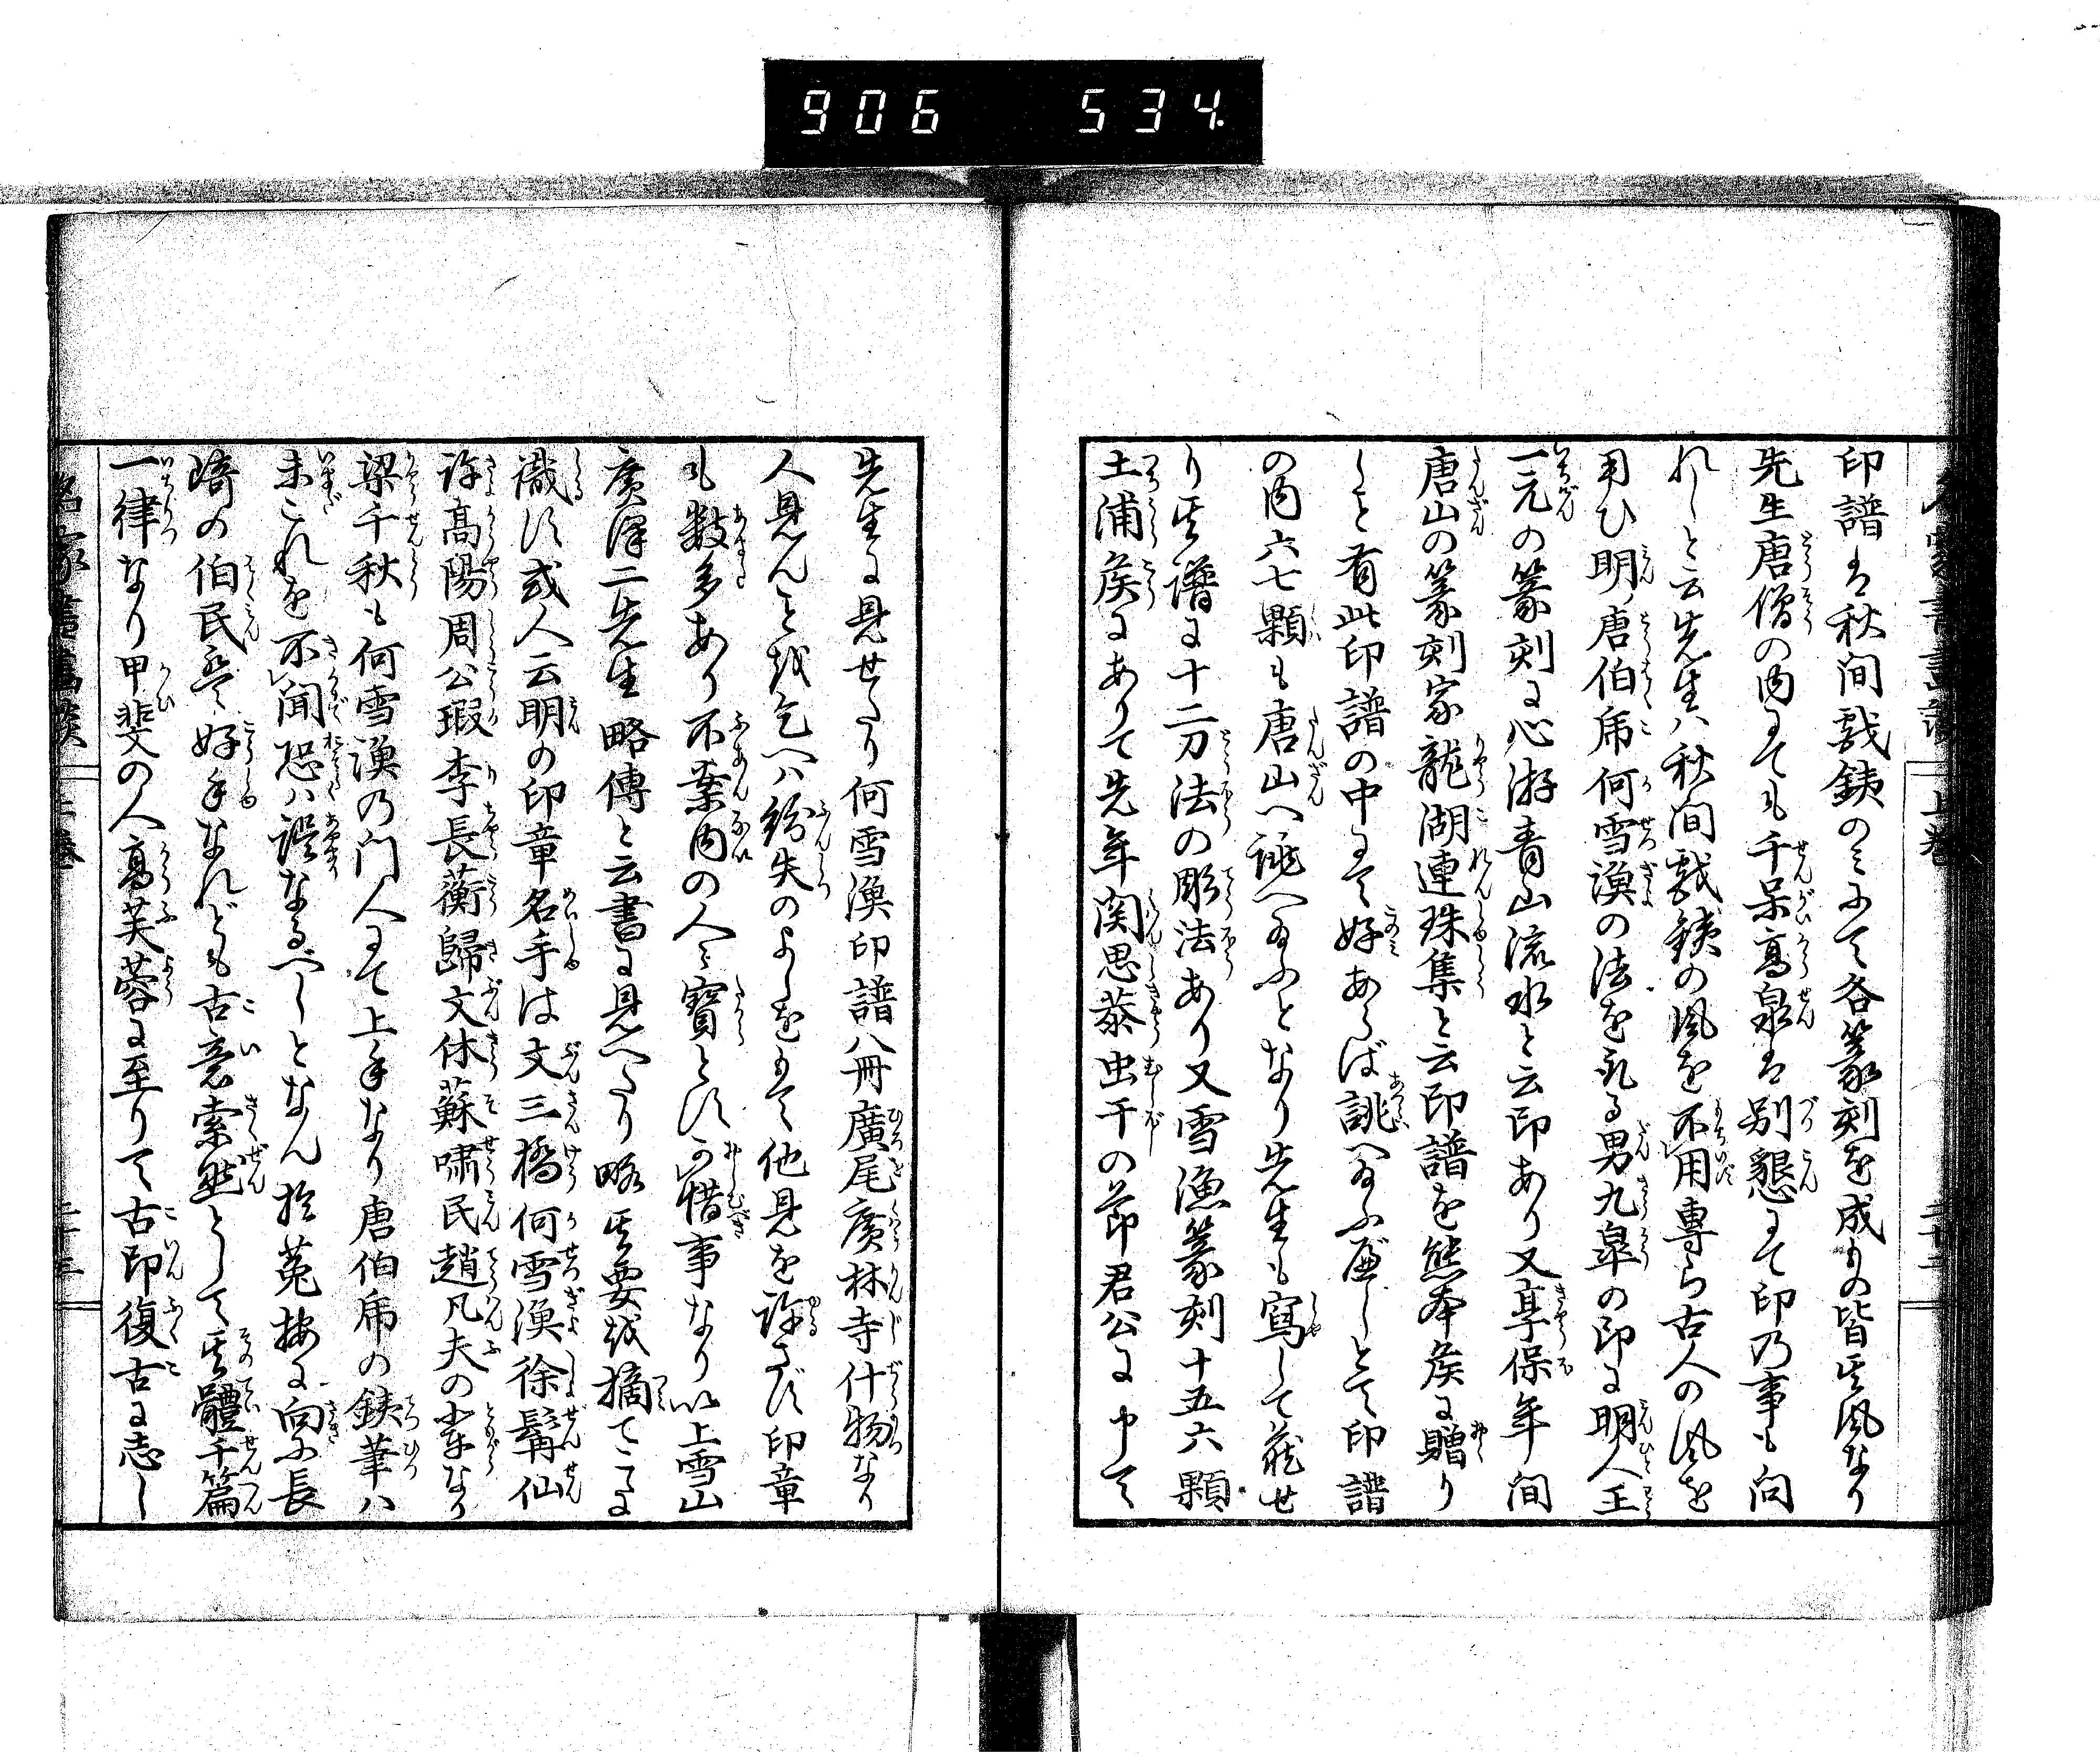 906 534
印譜は秋間戯銕のミにて各篆刻を成もの皆其風なり
先生唐僧の内にても千呆高泉は別懇にて印の事も向
れしと云先生ハ秋間戯銕の風を不用専ら古人の風を
用ひ明唐伯虎何雪漁の法を取る男九皐の印に明人王
一元の篆刻に心游青山流水と云印あり又享保年間
唐山の篆刻家龍湖連珠集と云印譜を熊本侯に贈り
しと有此印譜の中にて好あらば誂へ給ふ應しとて印譜
の内六七顆も唐山へ誂へ給ふとなり先生も寫して藏せ
り其譜に十二刀法の彫法あり又雪漁篆刻十五六顆
土浦侯にありて先年関思恭虫干の節君公に申て
先生に見せたり何雪漁印譜八冊廣尾廣林寺什物なり
人見んことを乞へハ紛失のよしをもて他見を許さず印章
も数多あり不案内の人を寶とす可惜事なり以上雪山
廣澤二先生略傳と云書に見へたり略其要を摘てこゝに
識す或人云明の印章名手は文三橋何雪漁徐髯仙
許高陽周公瑕李長蘅歸文休蘇嘯民趙凡夫の輩なり
梁千秋も何雪漁の門人にて上手なり唐伯虎の鉄筆ハ
未これを不聞恐ハ誤なるべしとなん於菟按に向ふ長
琦の伯民も好手なれども古意索然として其體千篇
一律なり甲斐の人高芙蓉に至りて古印復古に志し